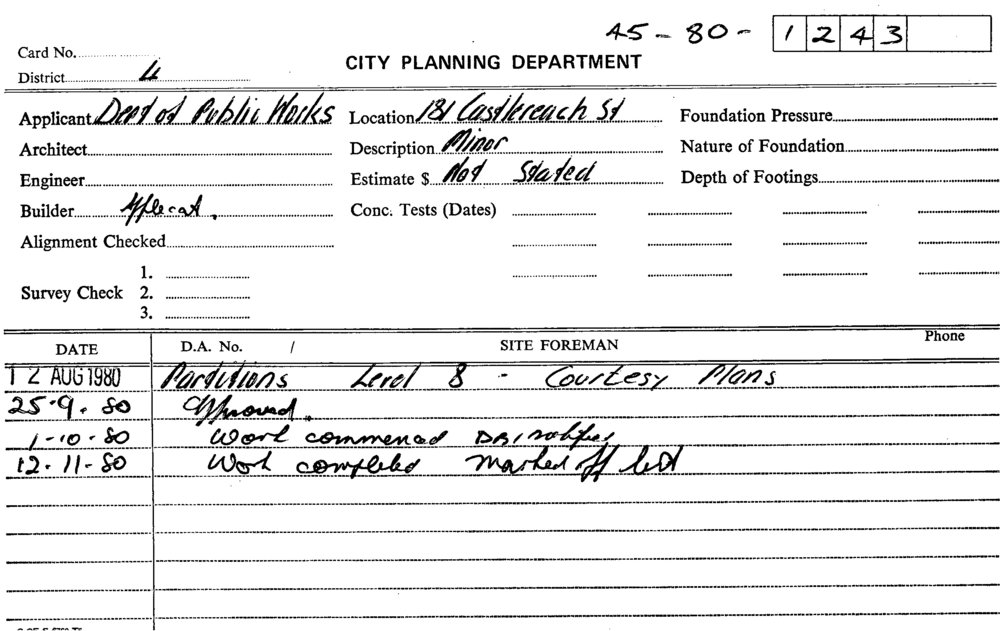 45-80- 1243
Card No.
CITY PLANNING DEPARTMENT
District 4
Applicant Dept of Public Works Location 131 Castlereach St Foundation Pressure
Architect Description Minor Nature of Foundation
Engineer Estimate $ Not Stated Depth of Footings
Builder Applicat. Conc. Tests (Dates)
Alignment Checked
1.
Survey Check 2.
3.
DATE D.A. No. / SITE FOREMAN Phone
12 AUG 1980 Partitions Level 8 - Courtesy Plans
25.9.80 Approved.
1-10-80 Work commenced notified
12.11-80 Work completed marked off list